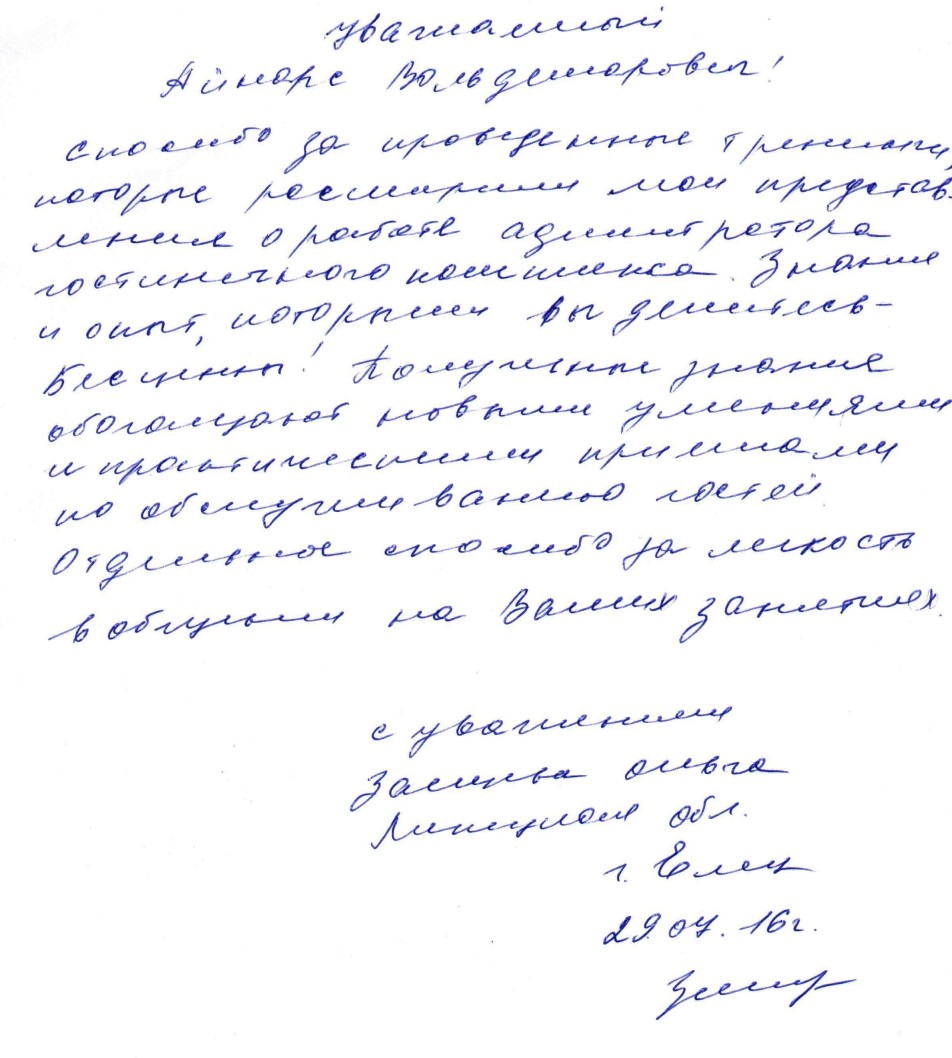 Уважаемый
Айнарс Вольдемарович!
Спасибо за проведенные тренинги,
которые расширили мои представ-
ления о работе администратора
гостиничного комплекса. Знания
и опыт, которыми вы делитесь -
Бесценны! Полученные знания
обогащают новыми умениями
и практическими приемами
по обслуживанию гостей
Отдельное спасибо за легкость
в общении на Ваших занятиях.
с уважением
Ольга
Липецкая обл.
г. Елец
29.07.16г.